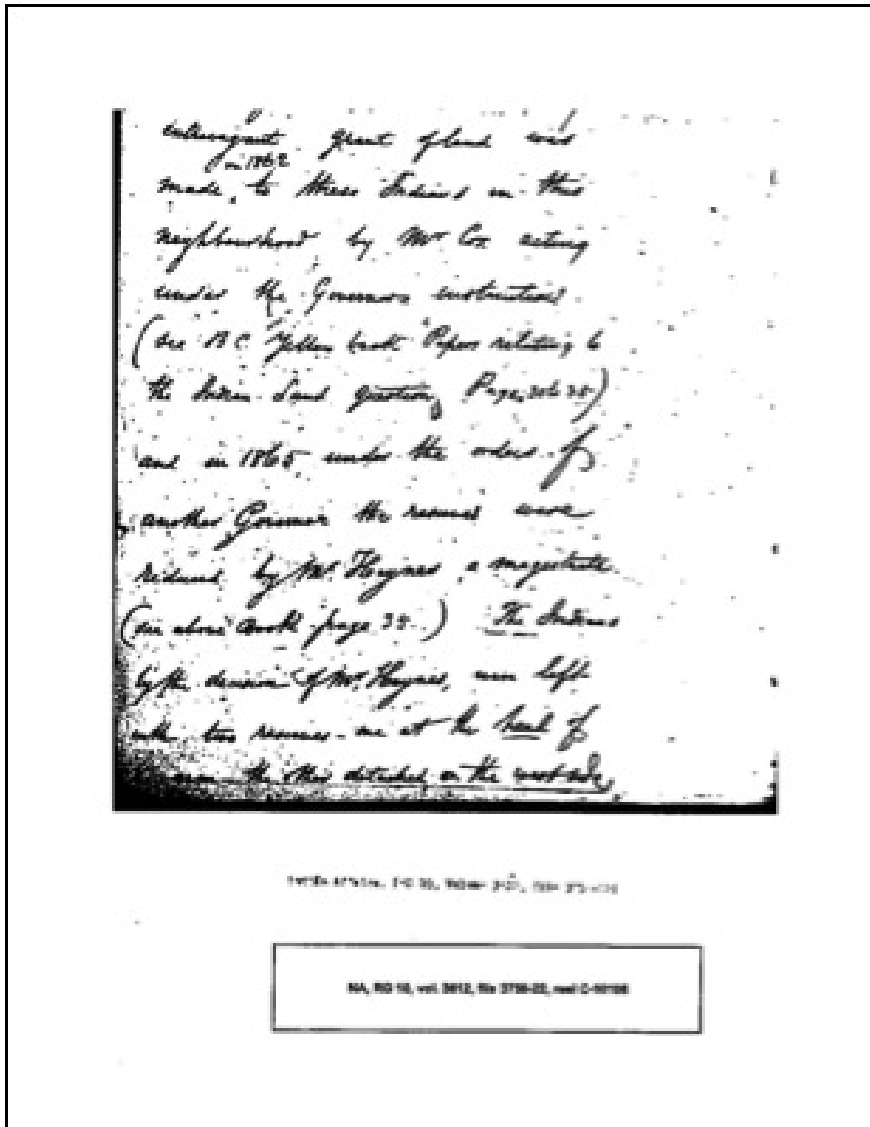 extravagant grant of land was
in 1862
made, to these Indians in this
neighbourhood by Mr Cox acting
under the Governors instructions
(see B.C. Yellow book Papers relating to
the Indian Land question, Page
and in 1865 under the orders of
another Governor the reserves were
reduced by Mr. Haynes, a magistrate
(see above book page 38.) The Indians
by the decision of Mr. Haynes, were left
with two reserves - one at the head of
the other detached, on the west side,
RG 10, Volume
NA, RG 10, vol. 3612, file 3756-22, reel C-10106